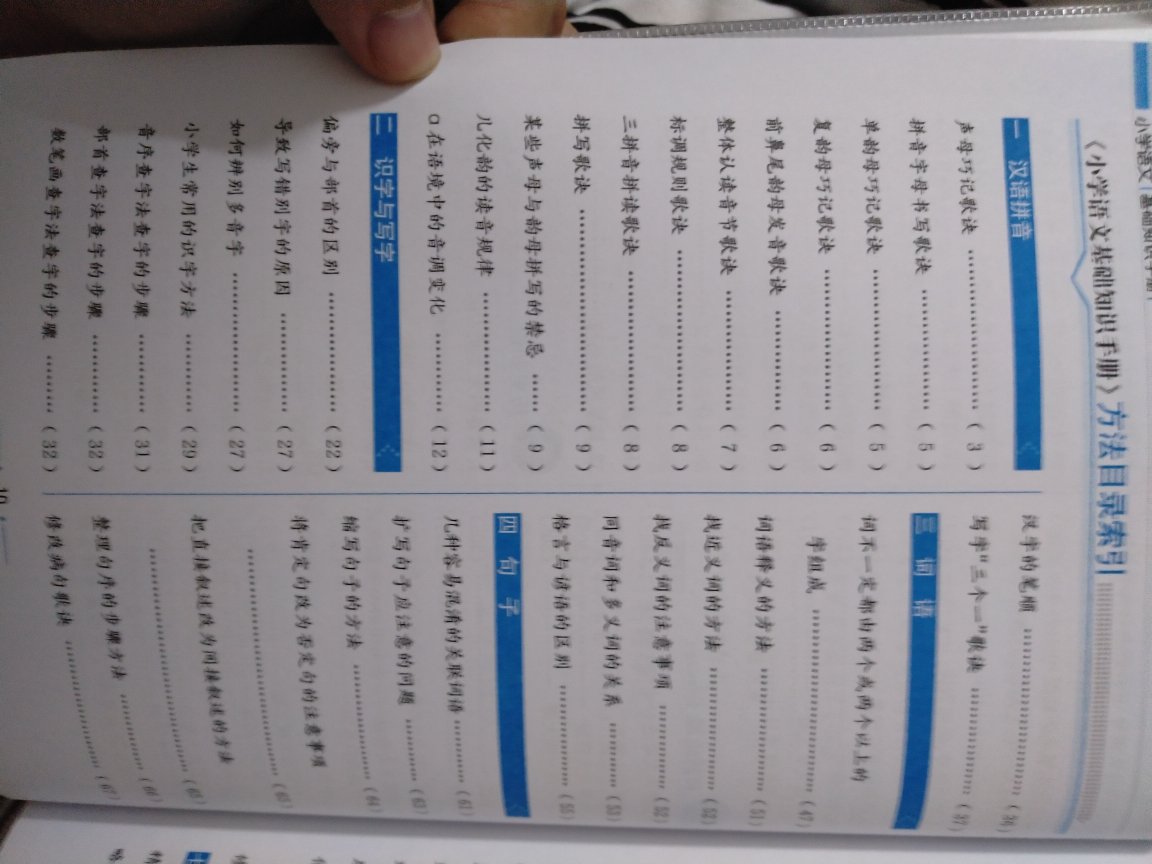 小学语文 基础知识手册
《小学语文基础知识手册》方法目录索引
一 汉语拼音
声母巧记歌诀 ……………………（3）
拼音字母书写歌诀 ……………（5）
单韵母巧记歌诀 ………………（5）
复韵母巧记歌诀 ………………（6）
前鼻尾韵母发音歌诀 …………（6）
整体认读音节歌诀 ……………（7）
标调规则歌诀 …………………（8）
三拼音拼读歌诀 ………………（8）
拼写歌诀 ………………………（9）
某些声母与韵母拼写的禁忌 ……（9）
儿化韵的读音规律 ……………（11）
α在语境中的音调变化 …………（12）
二 识字与写字
偏旁与部首的区别 ……………（22）
导致写错别字的原因 …………（27）
如何辨别多音字 ………………（27）
小学生常用的识字方法 ………（29）
音序查字法查字的步骤 ………（31）
部首查字法查字的步骤 ………（32）
数笔画查字法查字的步骤 ……（32）
汉字的笔顺 ……………………（36）
写字“三个一”歌诀 ……………（37）
三 词语
词不一定都由两个或两个以上的
字组成 …………………………（47）
词语释义的方法 ………………（51）
找近义词的方法 ………………（52）
找反义词的注意事项 …………（52）
同音词和多义词的关系 ………（53）
格言与谚语的区别 ……………（55）
四 句子
几种容易混淆的关联词语 ……（61）
扩写句子应注意的问题 ………（63）
缩写句子的方法 ………………（64）
将肯定句改为否定句的注意事项
……………………………………（65）
把直接叙述改为间接叙述的方法
……………………………………（65）
整理句序的步骤方法 …………（66）
修改病句歌诀 …………………（67）